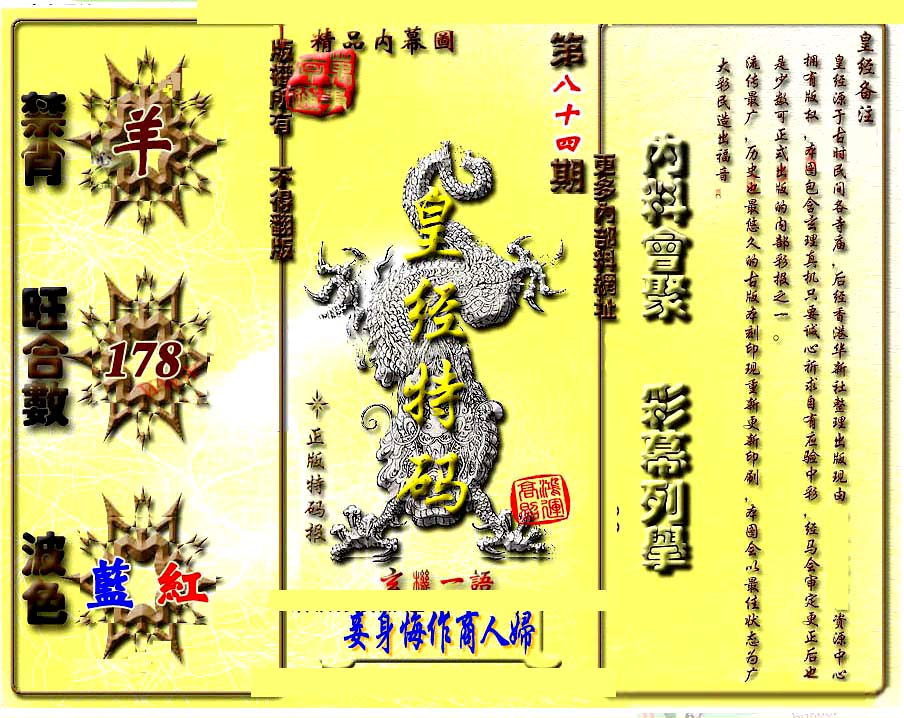 精品内幕圖
第八十四期
版權所有 不得翻版
更多內部料網址
皇经特码
正版特码报
鴻運高照
玄機一語
妾身悔作商人婦
禁肖
羊
旺合數
178
波色
藍 紅
內料會聚
彩幕列擧
皇经备注
皇经源于古时民间各寺庙，后经香港华新社整理出版现由 资源中心
拥有版权，本图包含玄理真机只要诚心祈求自有应验中彩，经马会审定更正后也
是少数可正式出版的内部彩报之一。
流传最广，历史也最悠久的古版本刻印现重新更新印刷，本图会以最佳状态为广
大彩民造出福音